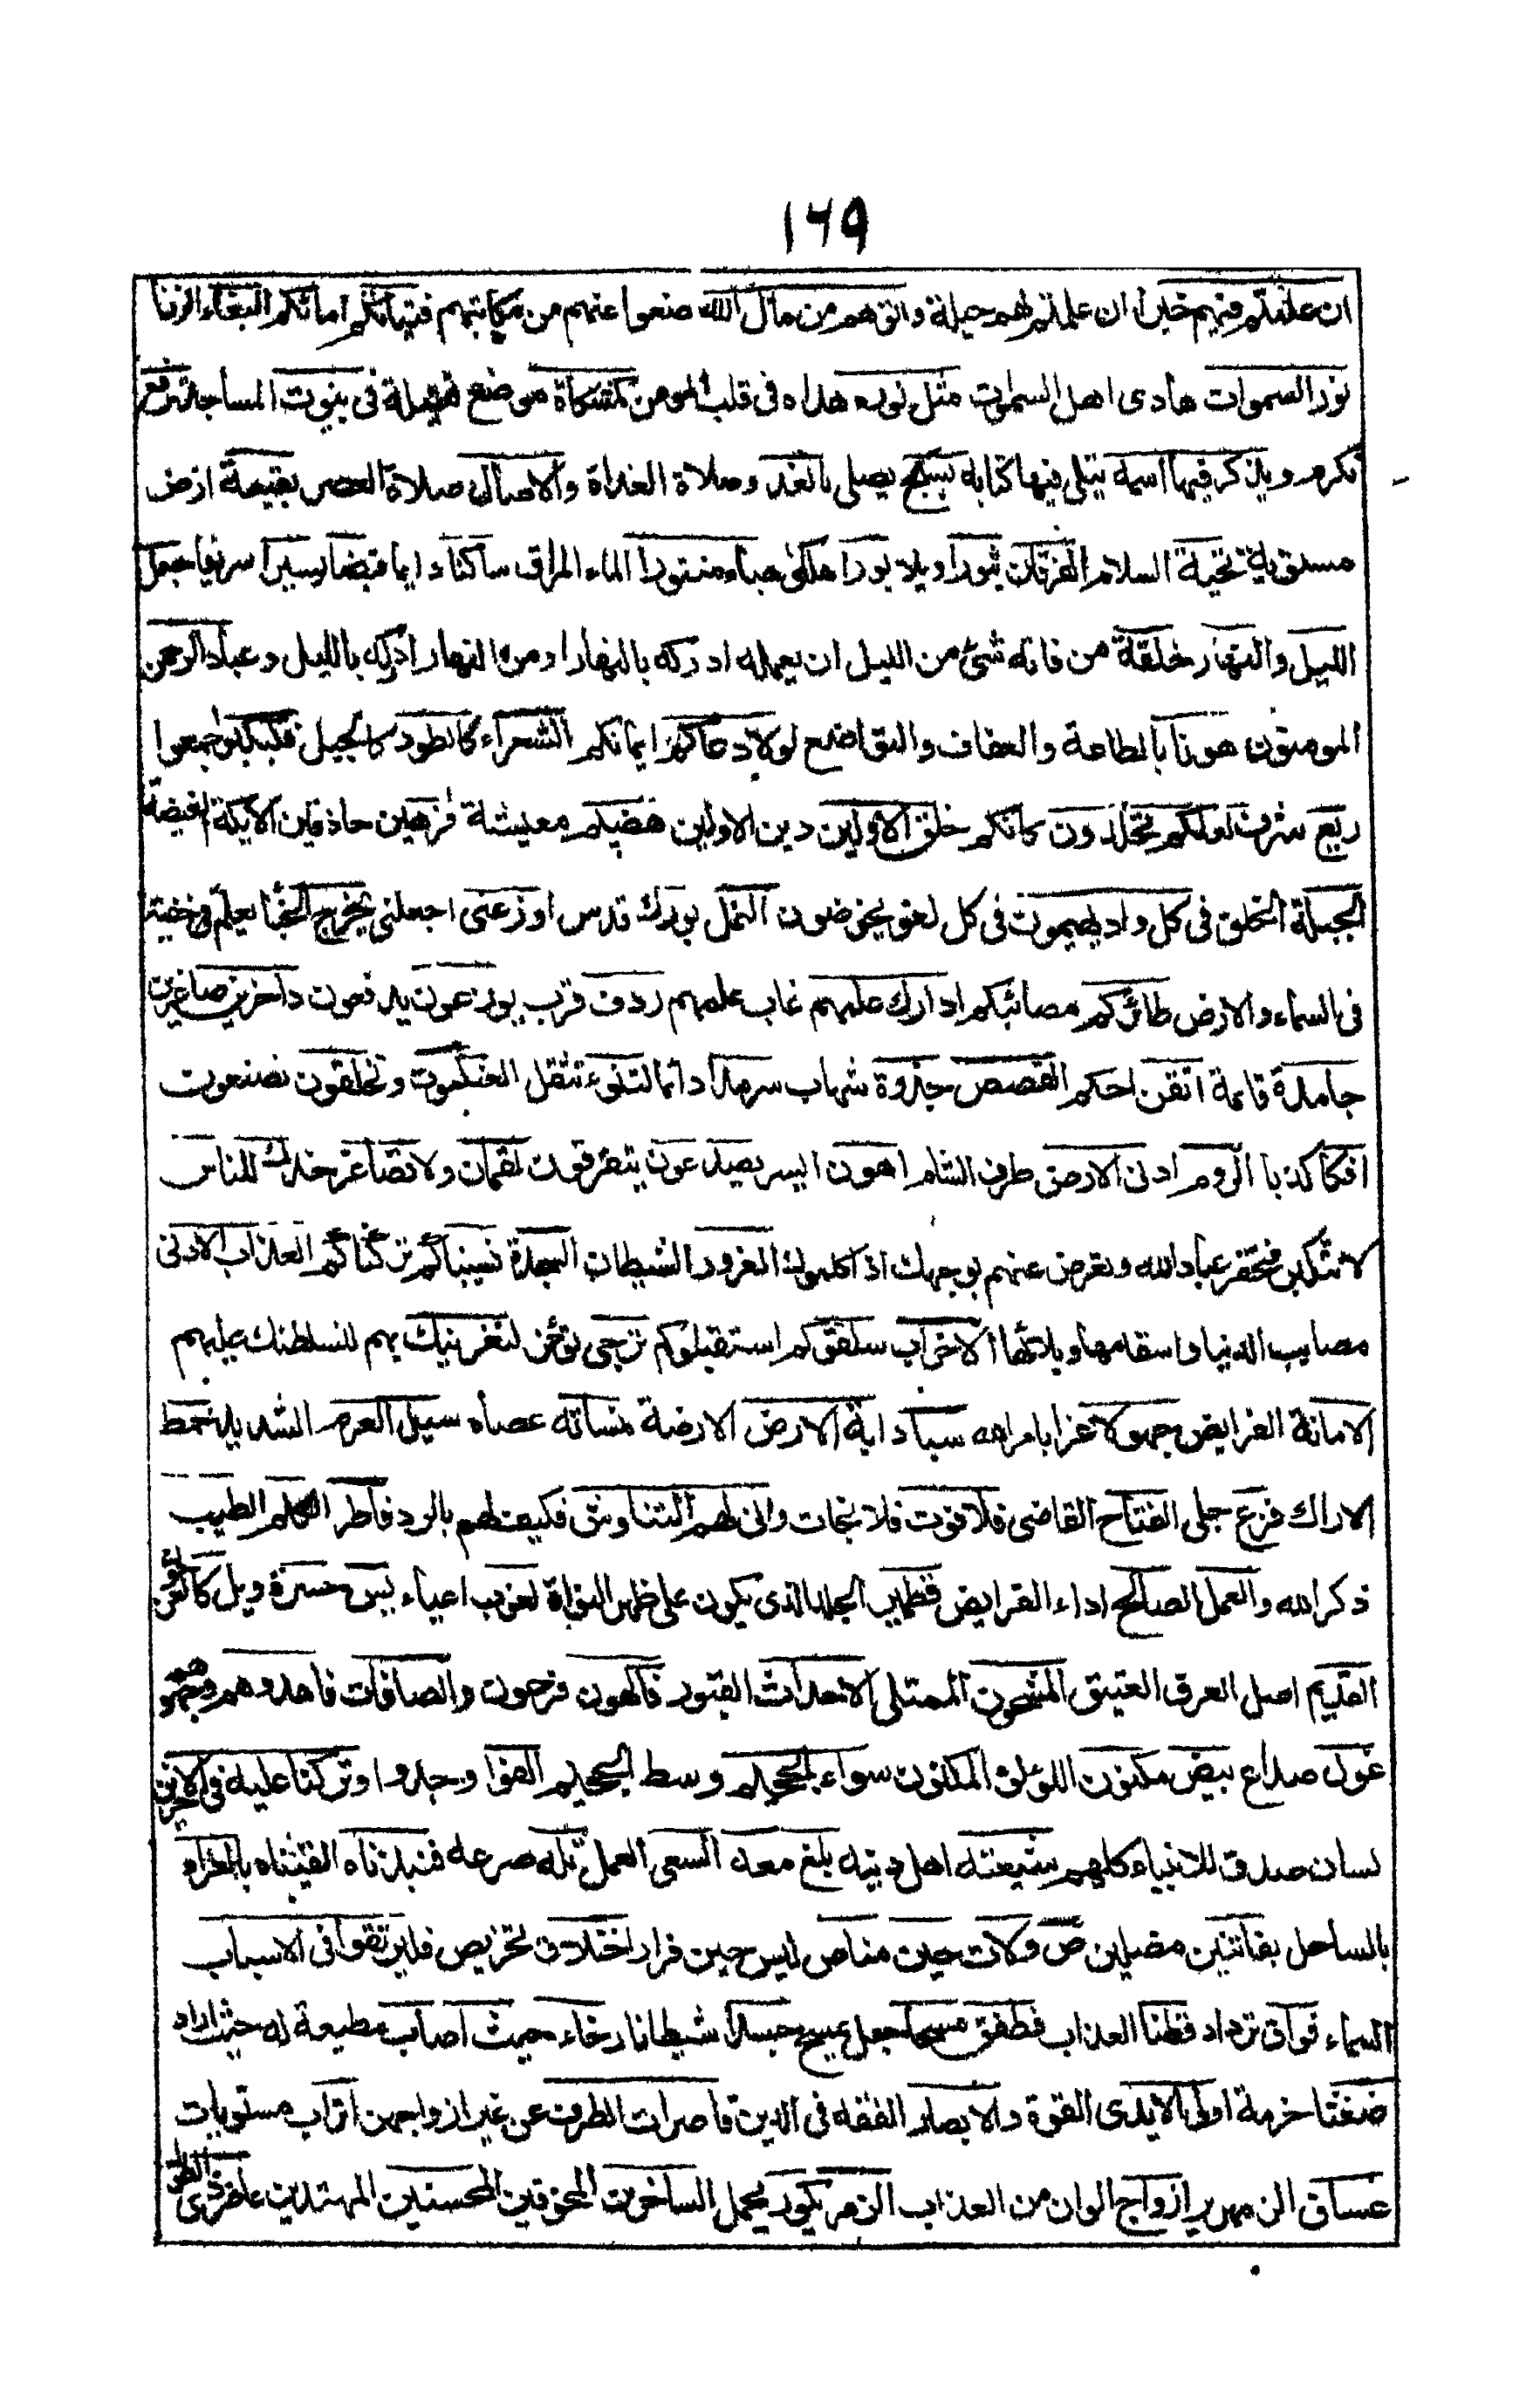 ١٦٩
ان علمتم فيهم خيرا ان علمتم لهم حيلة واتوهم من مال الله ضعوا عنهم من مكاتبتهم فتياتكم امائكم البغاء الزنا
نور السموات هادى اهل السموات مثل نوره هداه فى قلب المومن كمشكاة موضع فتيلة فى بيوت المساجد ترفع
تكرم ويذكر فيها اسمه يتلى فيها كتابه يسبح يصلى بالغد وصلاة الغداة والاصال صلاة العصر بقيعة ارض
مستوية تحية السلام الفرقان ثبورا ويلا بورا هلكى هباء منثورا الماء المهراق ساكنا دايما قبضا يسيرا سريعا جعل
الليل والنهار خلفة من فاته شئ من الليل ان يعمله ادركه بالنهار او من النهار ادركه بالليل وعباد الرحمن
المومنون هونا بالطاعة والعفاف والتواضع لولا دعاكم ايمانكم الشعراء كالطود كالجبل فكبكبوا جمعوا
ريع شرف لعلكم تخلدون كانكم خلق الاولين دين الاولين هضيم معيشة فرهين حاذقين الايكة الغيضة
الجبلة الخلق فى كل واد يهيمون فى كل لغو يخوضون النمل بورك قدس اوزعنى اجعلنى يخرج الخبأ يعلم كل خفية
فى السماء والارض طائركم مصائبكم ادارك علمهم غاب علمهم ردف قرب يوزعون يدفعون داخرين صاغرين
جامدة قائمة اتقن احكم القصص جذوة شهاب سرمدا دائما لتنوء تثقل العنكبوت وتخلقون تصنعون
افكا كذبا الروم ادنى الارض طرف الشام اهون ايسر يصدعون يتفرقون لقمان ولا تصاعر خدك للناس
لا تتكبر فتحقر عباد الله وتعرض عنهم بوجهك اذا كلموك الغرور الشيطان السجدة نسيناكم تركناكم العذاب الادنى
مصايب الدنيا واسقامها وبلائها الاحزاب سلقوكم استقبلوكم ترجى توخر لنغرينك بهم لنسلطنك عليهم
الامانة الفرايض جهولا غرا بامر الله سبأ دابة الارض الارضة منسأته عصاه سيل العرم الشديد خمط
الاراك فزع جلى الفتاح القاضى فلا فوت فلا نجات وانى لهم التناوش فكيف لهم بالرد فاطر الكلم الطيب
ذكر الله والعمل الصالح اداء الفرايض قطمير الجلد الذى يكون على ظهر النواة لغوب اعياء يس حسرة ويل كالعرجون
القديم اصل العرق العتيق المشحون الممتلى الاجداث القبور فاكهون فرحون والصافات فاهدوهم وجهوهم
غول صداع بيض مكنون اللؤلؤ المكنون سواء الجحيم وسط الجحيم الفوا وجدوا وتركنا عليه فى الاخرين
لسان صدق للانبياء كلهم شيعته اهل دينه بلغ معه السعى العمل تله صرعه فنبذناه القيناه بالعراء
بالساحل بفاتنين مضلين ص ولات حين مناص ليس حين فرار اختلاق تخريص فليرتقوا فى الاسباب
السماء فواق ترداد قطنا العذاب فطفق مسحا جعل يمسح جسدا شيطانا رخاء حيث اصاب مطيعة له حيث اراد
ضغثا حزمة اولى الايدى القوة والابصار الفقه فى الدين قاصرات الطرف عن غير ازواجهن اتراب مستويات
غساق الزمهرير ازواج الوان من العذاب الزمر يكور يحمل الساخرين المخوفين المحسنين المهتدين غافر ذى الطول